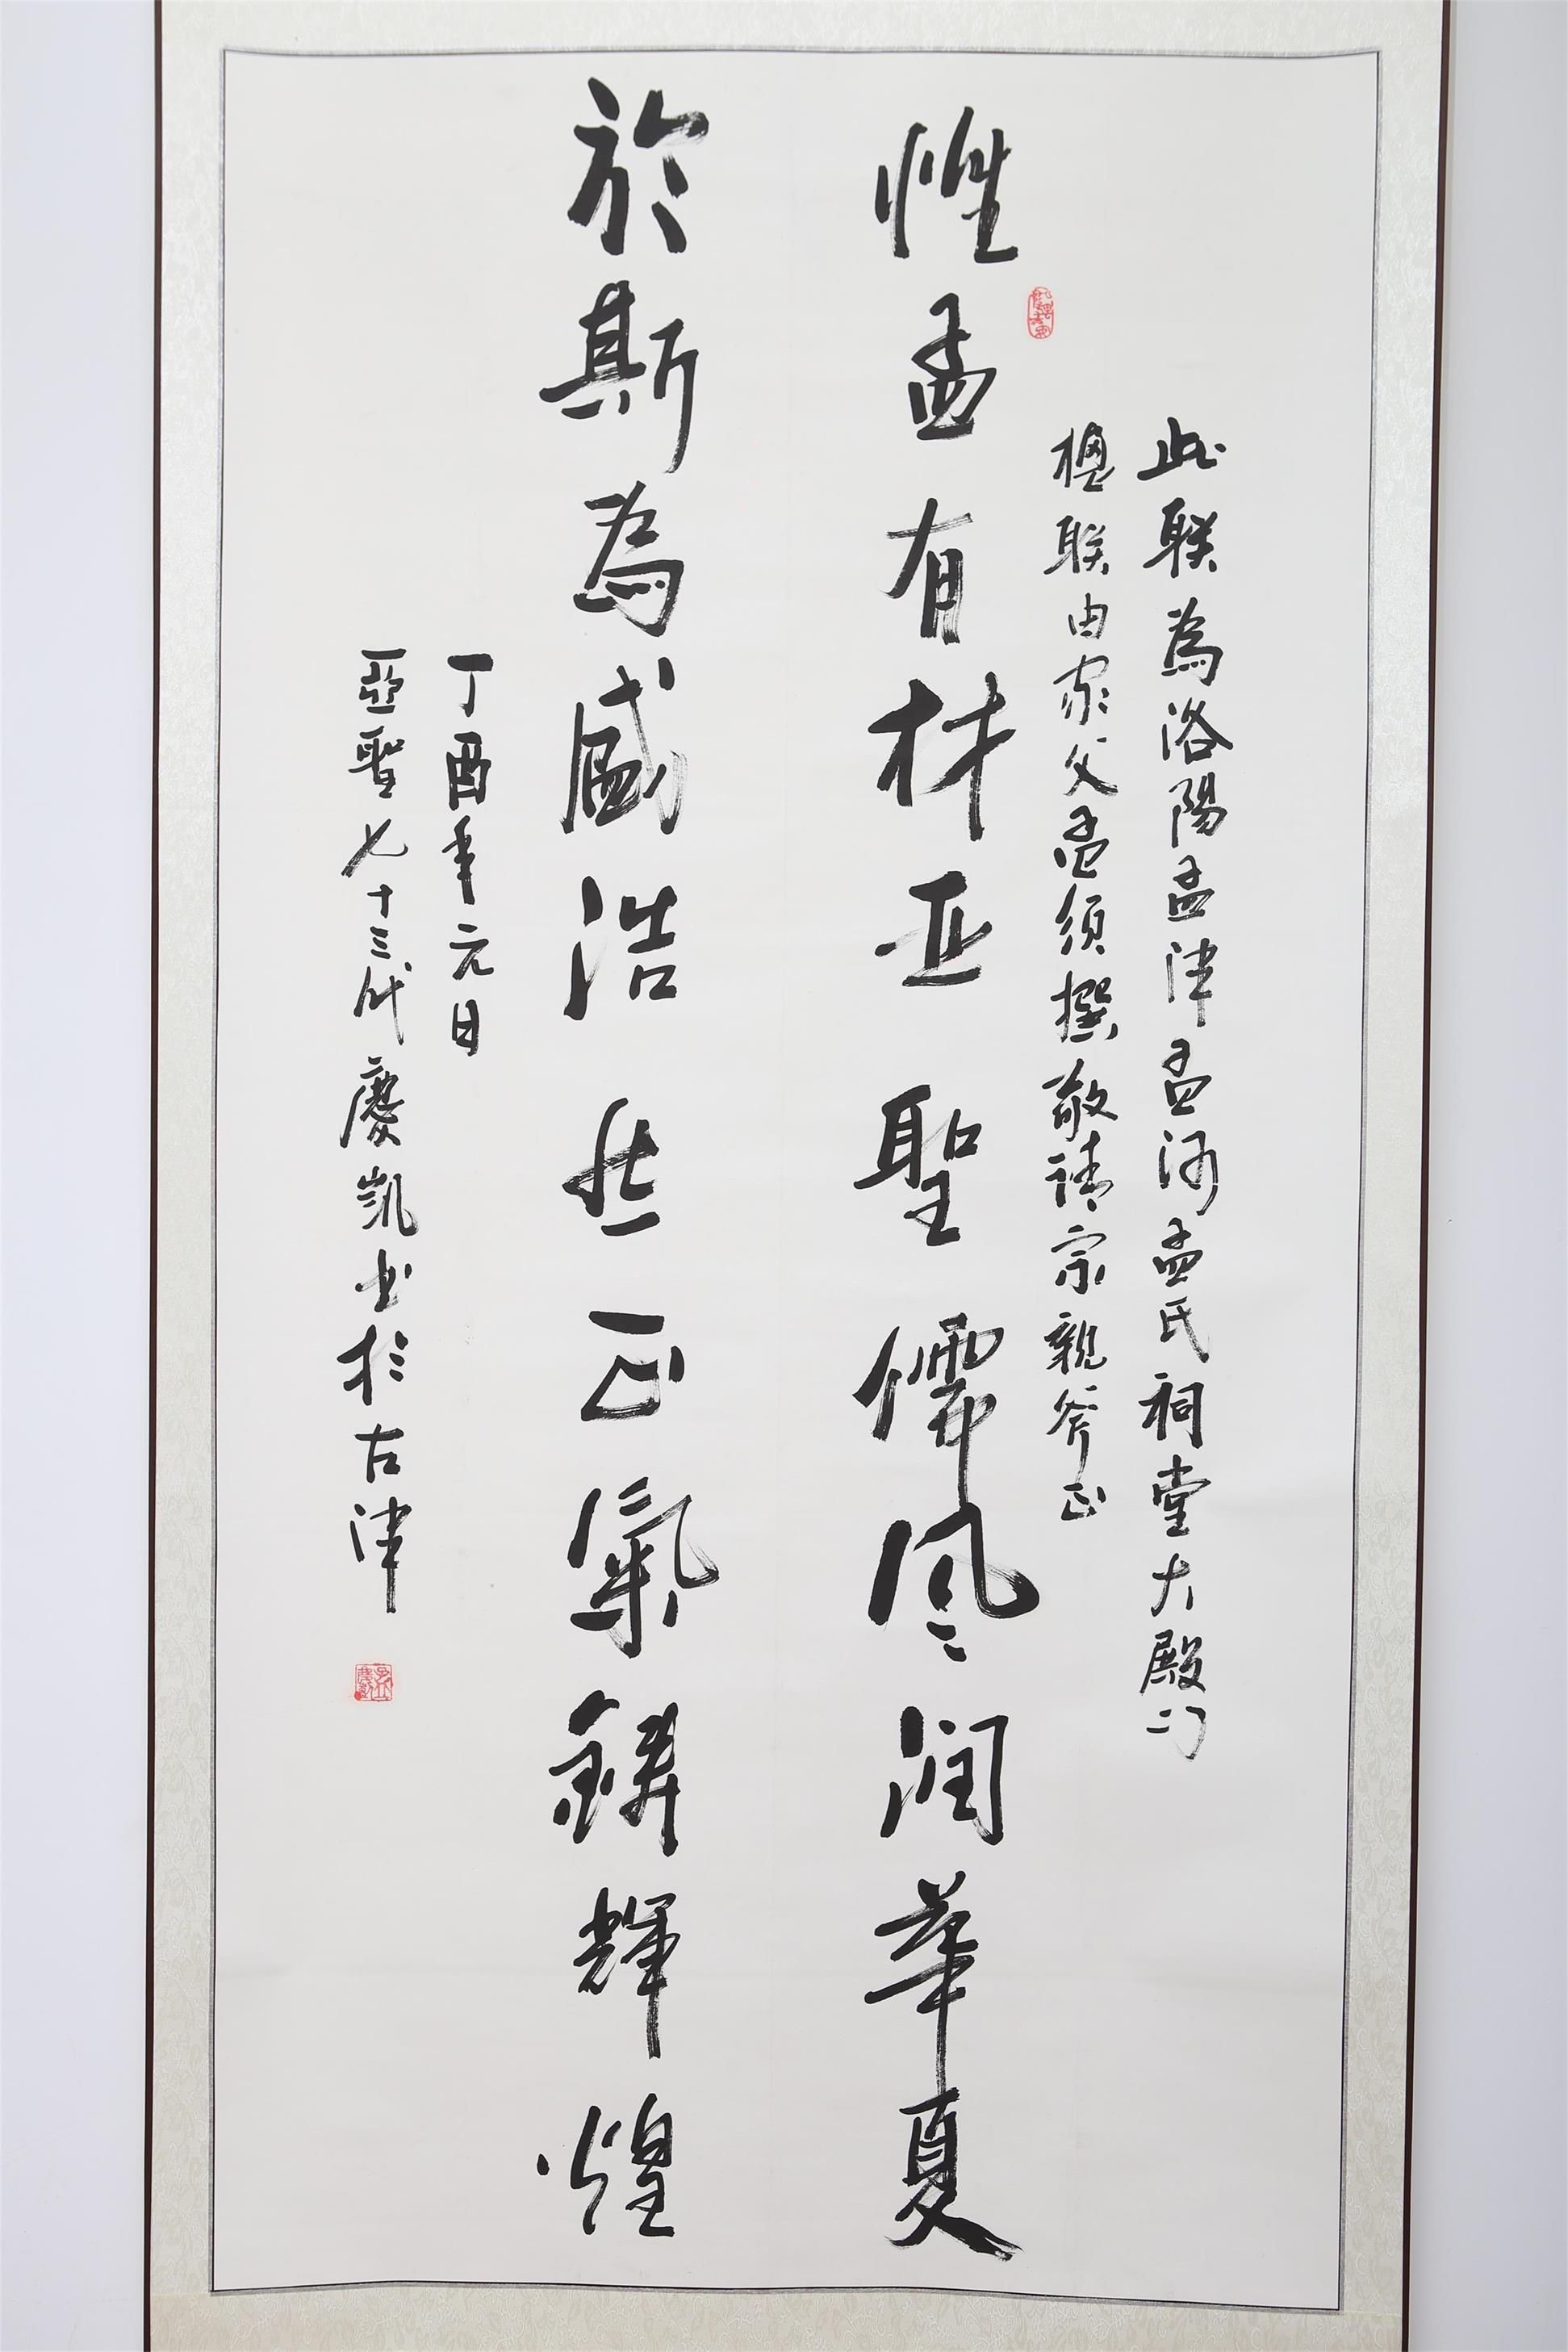 此联為洛陽孟津孟河孟氏祠堂大殿门
楹联由家父孟须撰敬请宗親斧正
惟孟有材亚聖儒风润華夏
於斯為盛浩然正氣鑄輝煌
丁酉年元日
亞聖七十三代慶凯书於古津